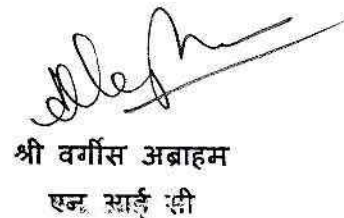 श्री वर्गीस अब्राहम
एन आई सी